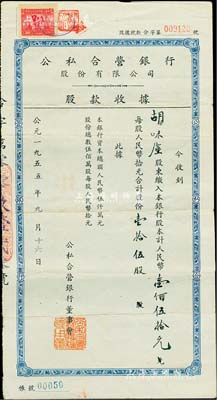 009120 號
公私合營銀行
股份有限公司
股款收據
今收到
胡咏廬股東繳入本銀行股本計人民幣壹佰伍拾元
每股人民幣拾元合計股份壹拾伍股
此據
本銀行資本總額人民幣伍仟萬元
股份總數伍佰萬股每股人民幣拾元
公私合營銀行董事會
公元一九五五年九月十六日
帳號 00050